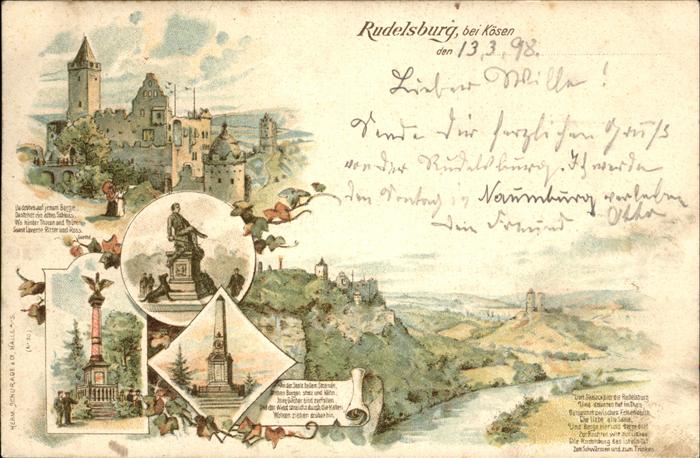 Rudelsburg, bei Kösen
den 13.3.98.
Lieber Wille!
Sende Dir herzlichen Gruß
von der Rudelsburg. Ich werde
den Sontag in Naumburg verleben
Dein Freund Otto
Da droben auf jenem Berge,
Da steht ein altes Schloss,
Wo hinter Thoren und Thüren
Sonst lauerte Ritter und Ross.
Goethe
An der Saale hellem Strande,
Stehen Burgen stolz und kühn,
Ihre Dächer sind zerfallen
Und der Wind streicht durch die Hallen,
Wolken ziehen drüber hin.
die Rudelsburg
Die liebe alte Saale,
Zum Schwärmen und zum Trinken.
HERM. SCHURADE & CO, HALLE A/S.